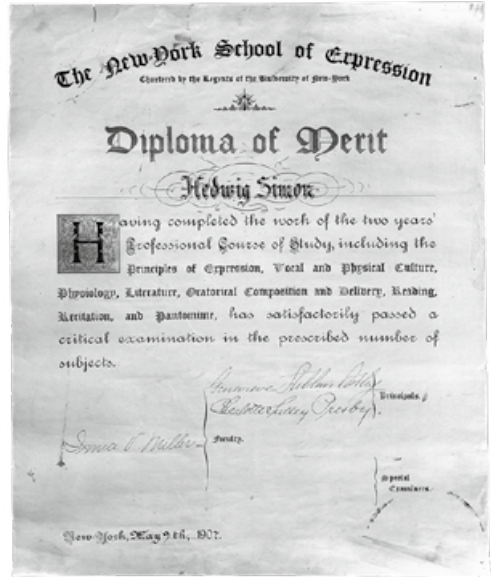 The New-York School of Expression
Chartered by the Regents of the University of New-York
Diploma of Merit
Hedwig Simon
Having completed the work of the two years'
Professional Course of Study, including the
Principles of Expression, Vocal and Physical Culture,
Physiology, Literature, Oratorical Composition and Delivery, Reading,
Recitation, and Pantomime, has satisfactorily passed a
critical examination in the prescribed number of
subjects.
Genevieve Stebbins
Charlotte Presby
Principals.
Miller
Faculty.
Special
Examiners.
New-York, May 9th, 1902.